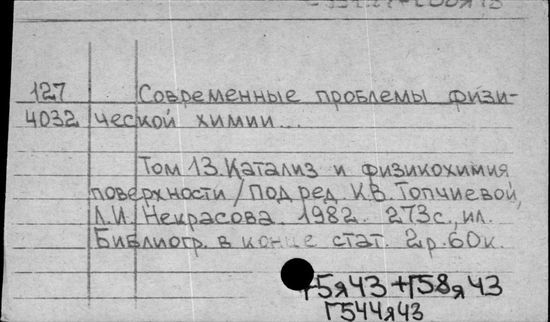 127 Современные проблемы физи-
4032 ческой химии...
Том 13. Катализ и физикохимия
поверхности / Под ред. К.В. Топчиевой,
Л.И. Некрасова. 1982. 273с., ил.
Библиогр. в конце стат. 2р.60к.
Г5я43 + Г58я43
Г544я43